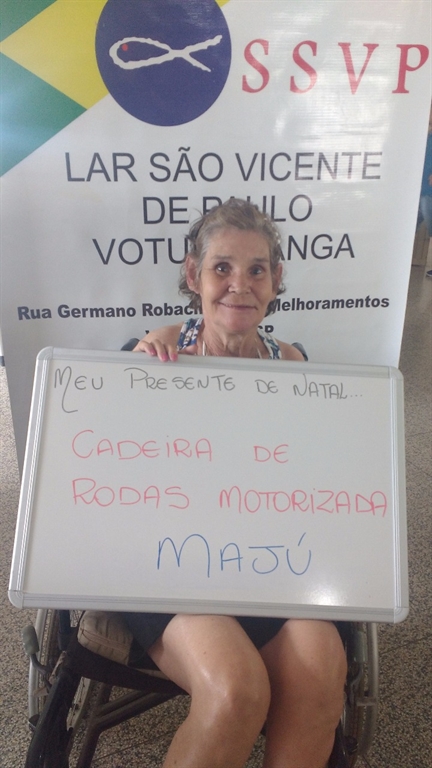 SSVP
LAR SÃO VICENTE
DE PAULO
VOTU ANGA
Rua Germano Robac Melhoramentos
MEU PRESENTE DE NATAL...
CADEIRA DE
RODAS MOTORIZADA
MAJÚ